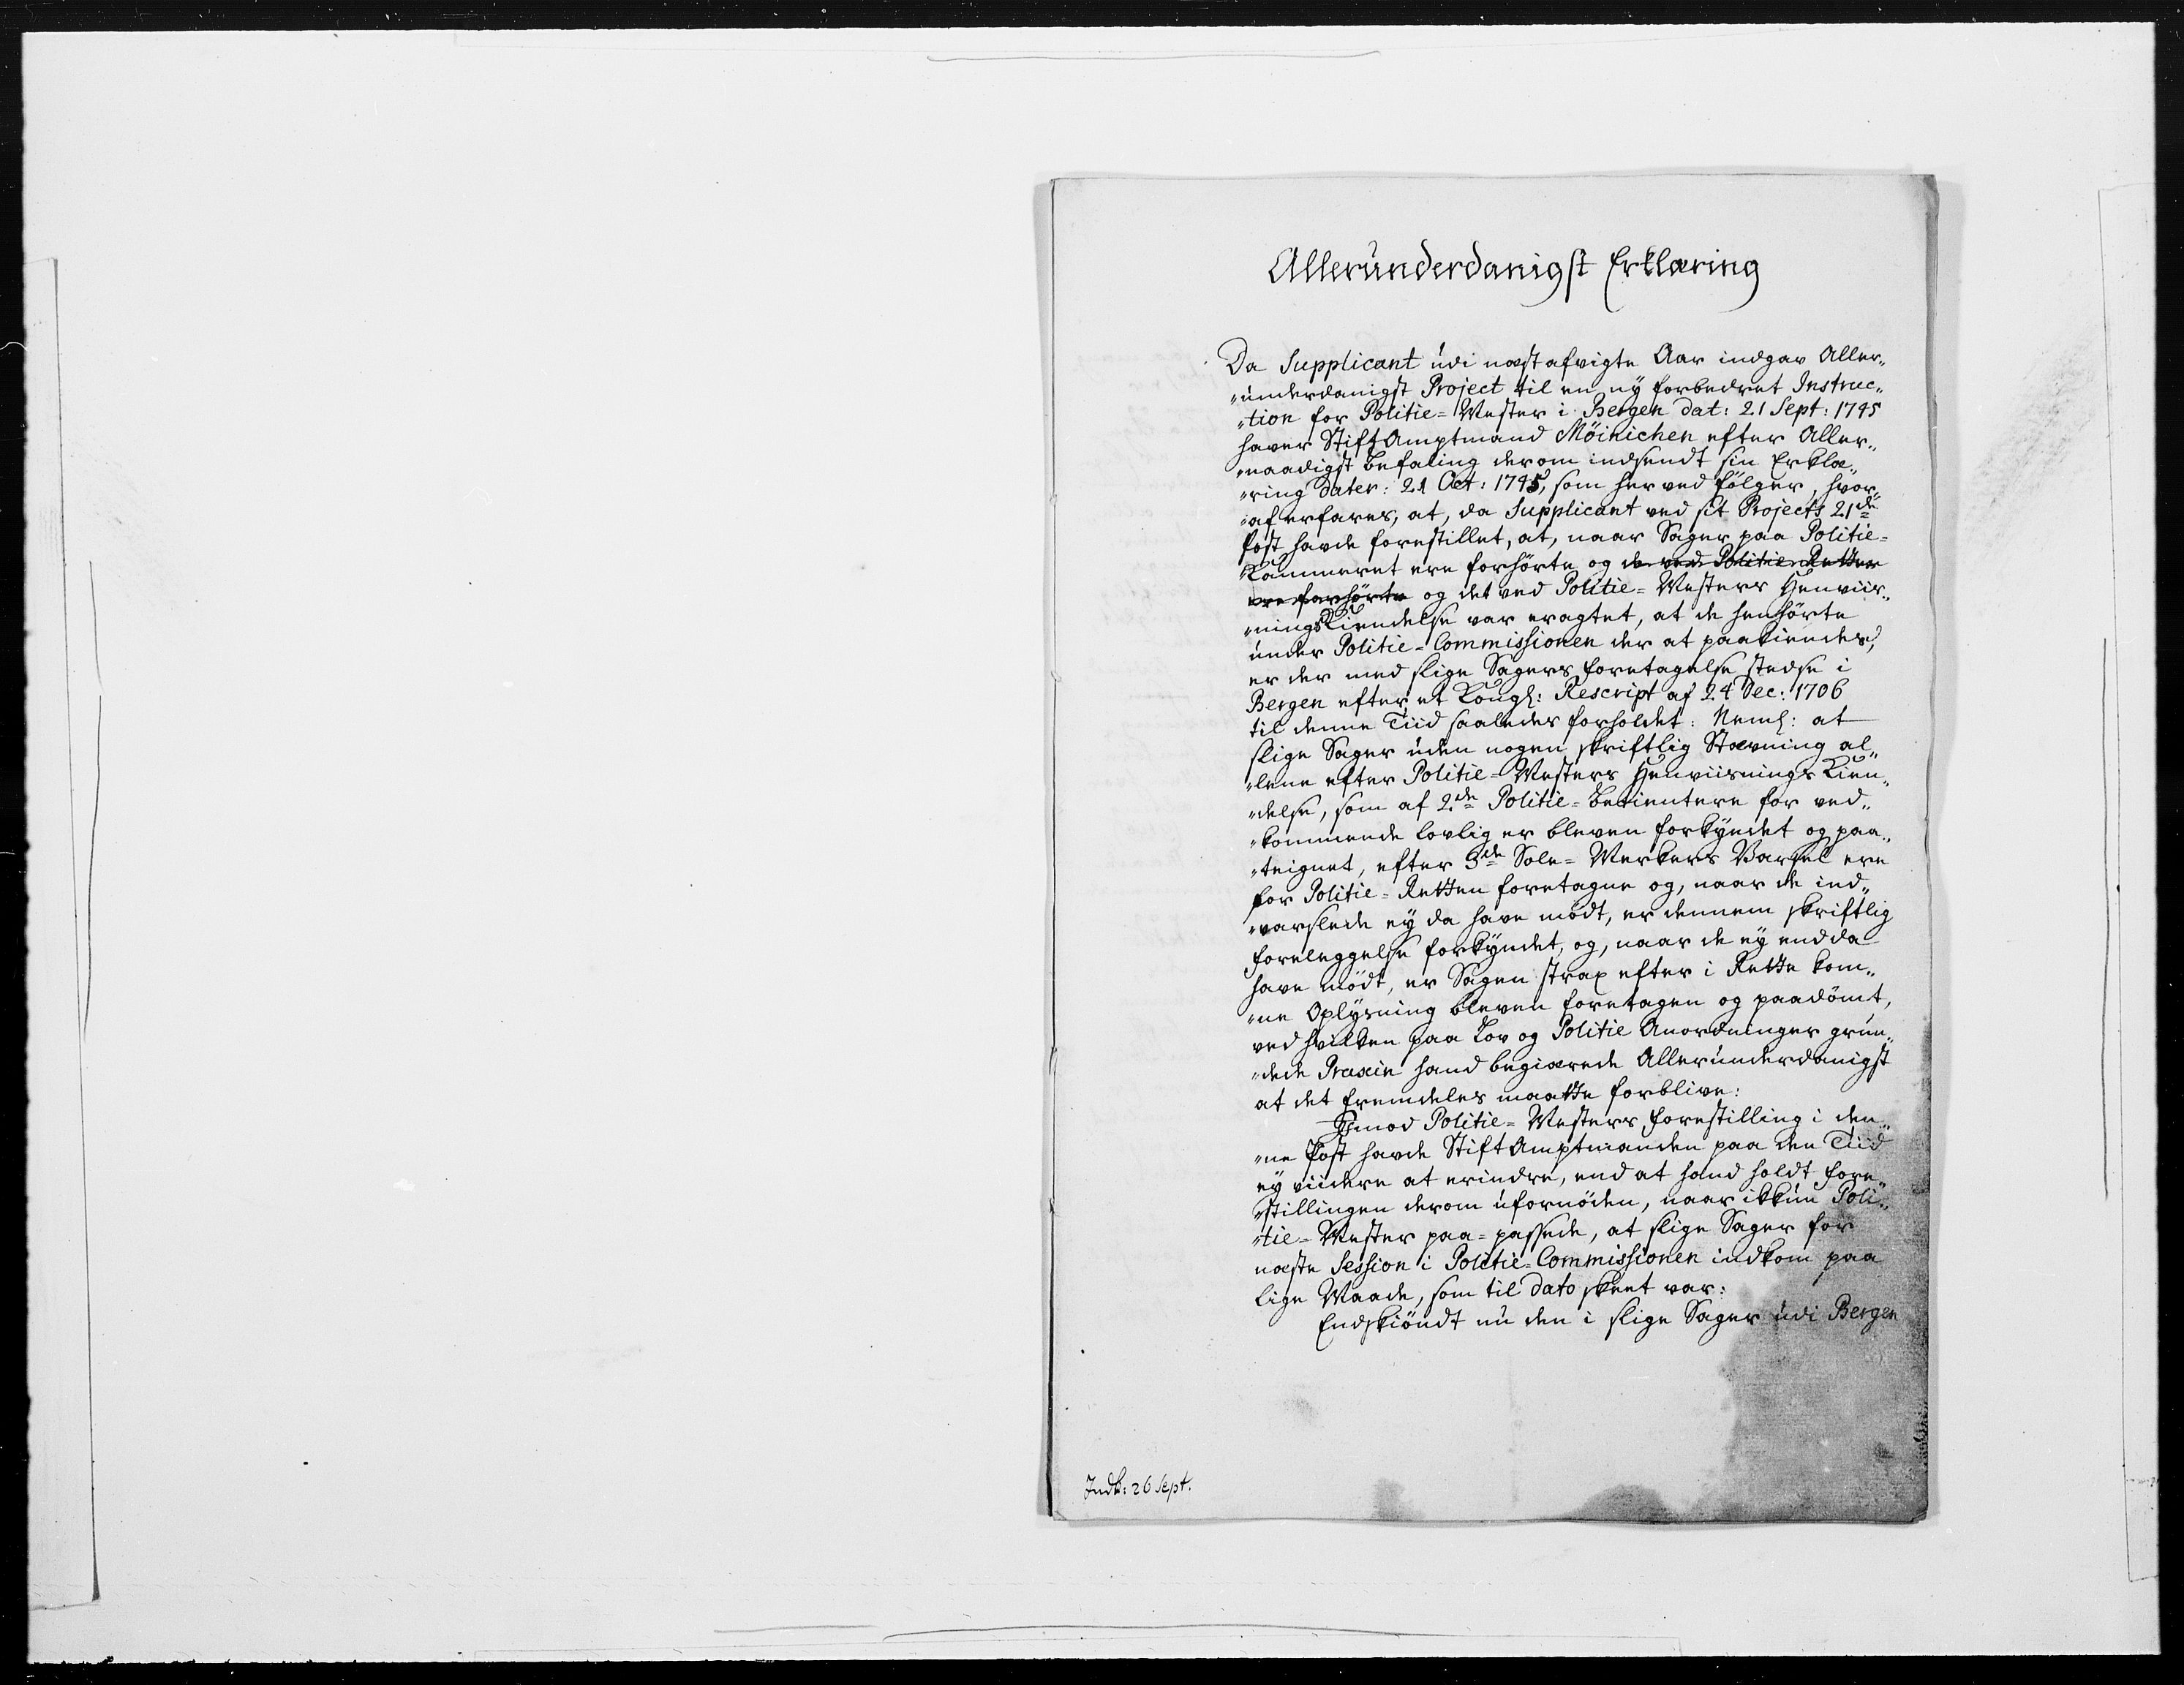 Allerunderdanigst Erklæring
Da Supplicant udi næst afvigte Aar indgav Aller„
„underdanigst Project til en ny forbedret Instruc„
„tion for Politie=Mester i Bergen dat: 21 Sept: 1745
haver StiftAmptmand Möinichen efter Aller„
„naadigst Befaling derom indsendt sin Erklæ„
„ring dater: 21 Oct: 1745, som her ved følger, hvor„
„af erfares, at, da Supplicant ved sit Projects 21de
Post havde forestillet, at, naar Sager paa Politie=
Kammeret ere forhørte og de ved Politie Retten
ere forhørte og det ved Politie=Mesters Henviis„
„nings Kiendelse var eragtet, at de henhørte
under Politie=Commissionen der at paakiendes,
er der med slige Sagers foretagelse stedse i
Bergen efter et Kongl: Rescript af 24 Dec: 1706
til denne Tiid saaledes forholdet: Neml: at
slige Sager uden nogen skriftlig Stævning al„
„lene efter Politie=Mesters Henviisnings Kien„
„delse, som af 2de Politie=Betientere for ved„
„kommende lovlig er bleven forkyndet og paa„
„teignet, efter 3de Sole=Merkers Varsel ere
for Politie=Retten foretagne og, naar de ind„
„varslede ey da have mødt, er dennem skriftlig
foreleggelse forkyndet, og, naar de ey endda
have mødt, er Sagen strax efter i Rette kom„
„ne Oplysning bleven foretagen og paadømt,
ved hvilken paa Lov og Politie Anordninger grun„
„dede Praxin hand begiærede Allerunderdanigst
at det fremdeles maatte forblive:
Imod Politie=Mesters forestilling i den„
„ne Post havde StiftAmptmanden paa den Tiid
ey viidere at erindre, end at hand holdt fore„
„stillingen derom ufornöden, naar ikkun Poli„
„tie=Mester paa=passede, at slige Sager for
næste Session i Politie=Commissionen indkom paa
lige Maade, som til dato skeet var:
Endskiöndt nu den i slige Sager udi Bergen
Indk: 26 Sept.